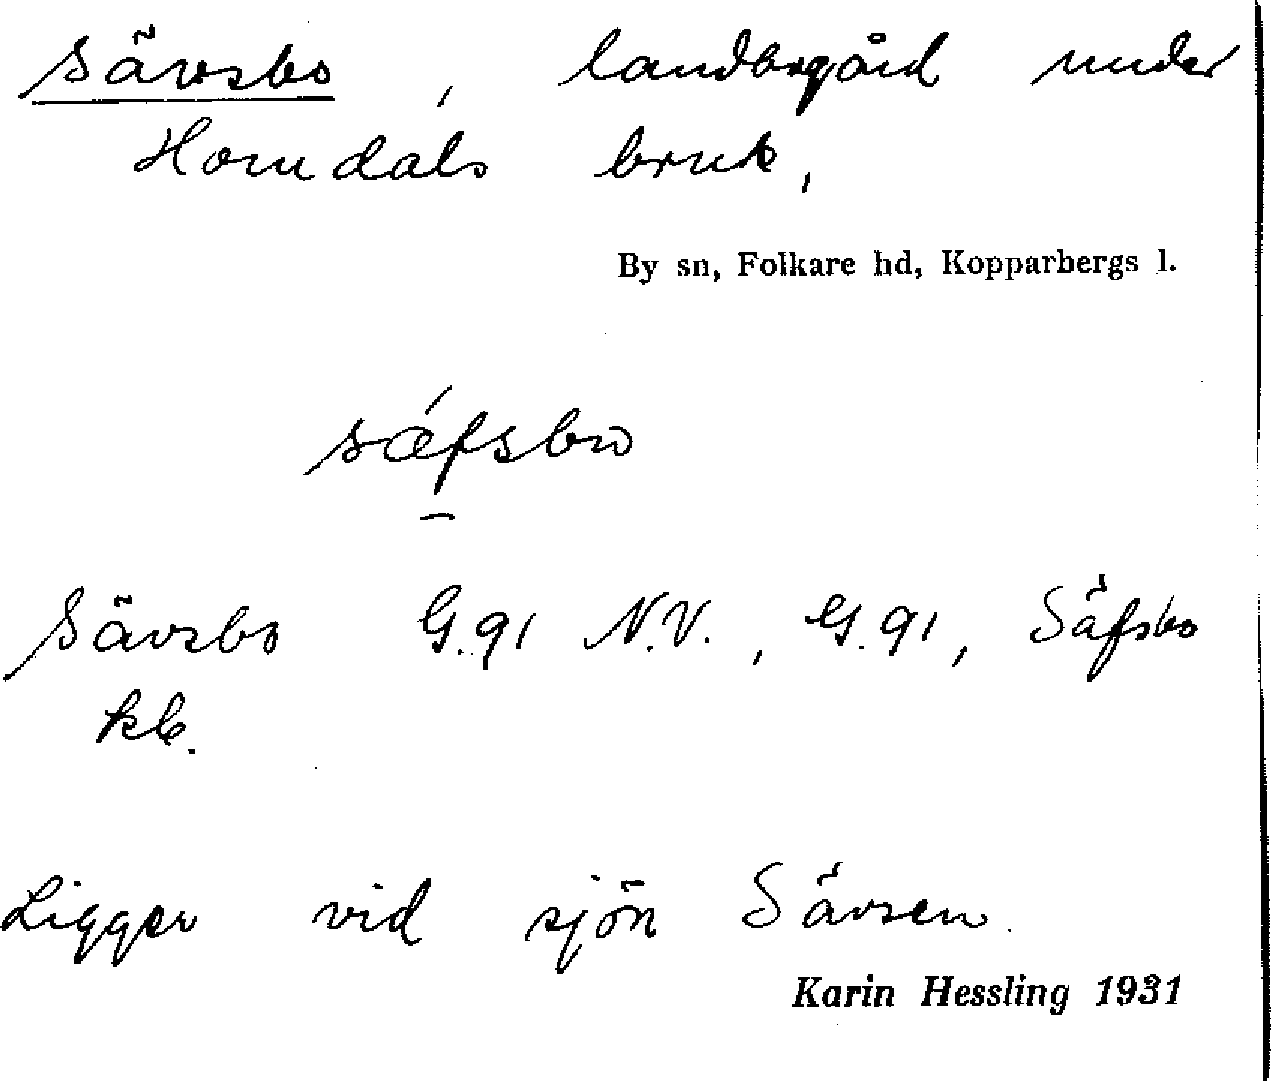 Sävsbo, landbogård under
Horndals bruk,
By sn, Folkare hd, Kopparbergs l.
sǽfsbω
Sävsbo G.91 N.V., G.91, Säfsbo
kb.
Ligger vid sjön Sävsen.
Karin Hessling 1931